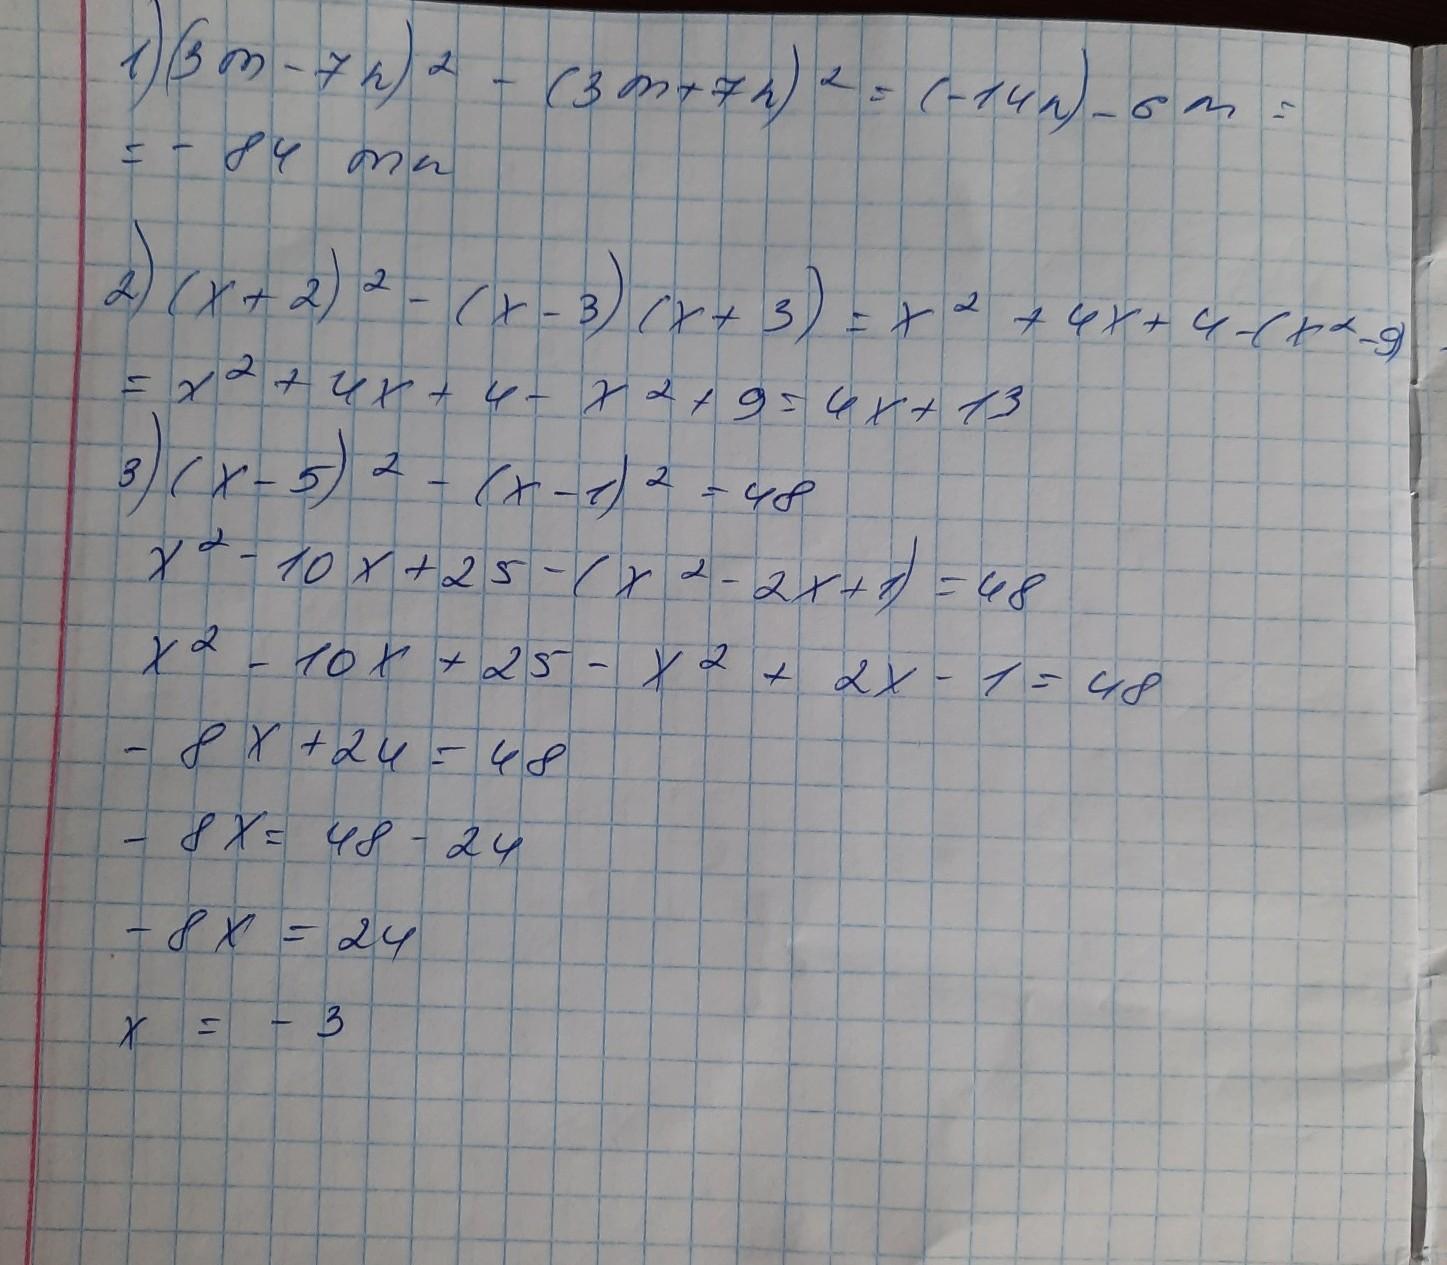 1) (3m - 7n)² - (3m + 7n)² = (-14n) - 6m =
= - 84 mn
2) (x + 2)² - (x - 3) (x + 3) = x² + 4x + 4 - (x² - 9)
= x² + 4x + 4 - x² + 9 = 4x + 13
3) (x - 5)² - (x - 1)² = 48
x² - 10x + 25 - (x² - 2x + 1) = 48
x² - 10x + 25 - x² + 2x - 1 = 48
- 8x + 24 = 48
- 8x = 48 - 24
- 8x = 24
x = - 3